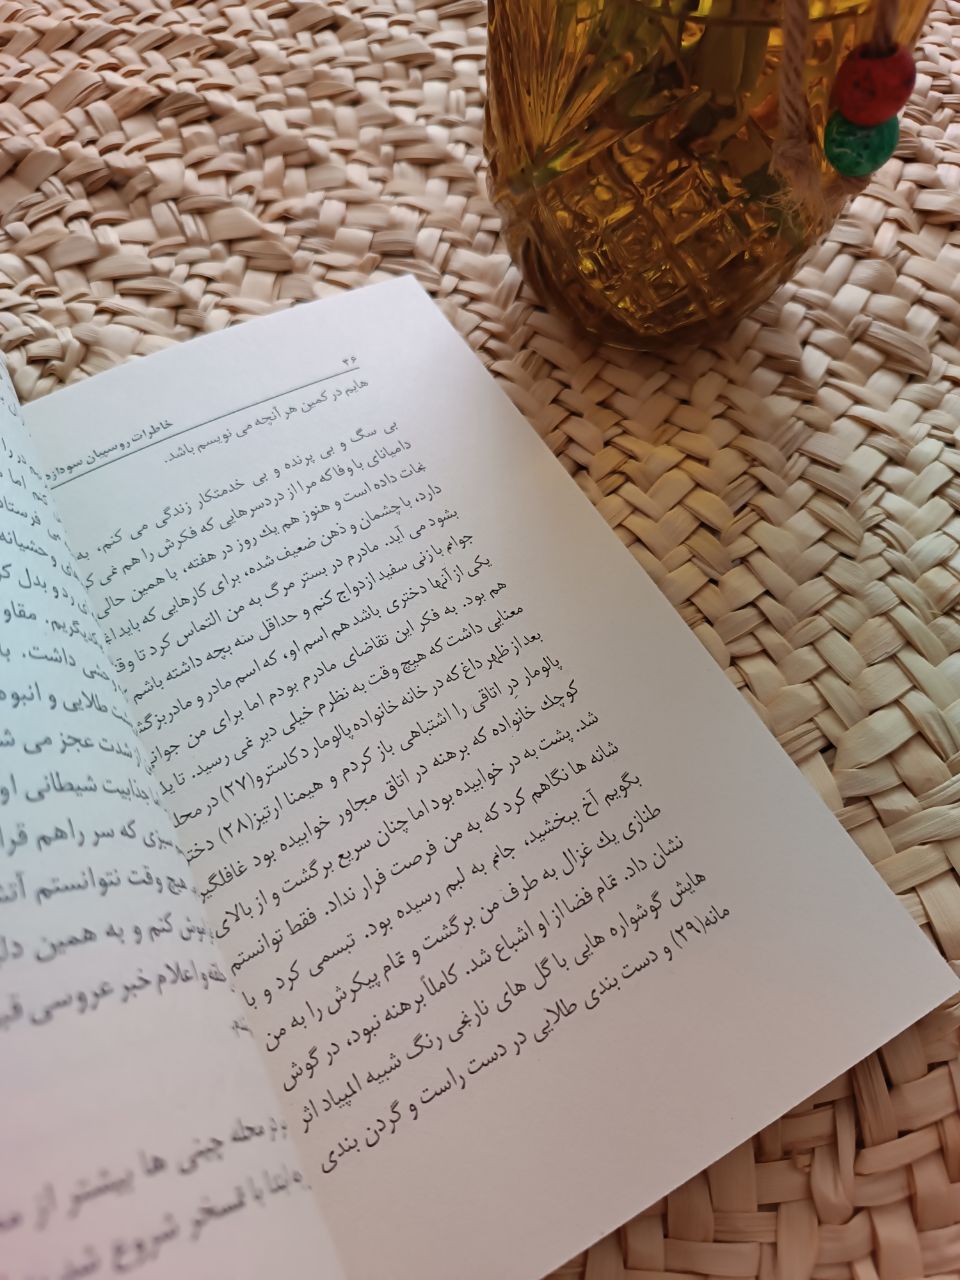 ۳۶
خاطرات روسپیان سودازده
هایم در کمین هر آنچه می نویسم باشد.
بی سگ و بی پرنده و بی خدمتکار زندگی می کنم، به
دامیانای با وفا که مرا از دردسرهایی که فکرش را هم نمی
نجات داده است و هنوز هم یك روز در هفته، با همین حالی
دارد، با چشمان و ذهن ضعیف شده، برای کارهایی که باید
بشود می آید. مادرم در بستر مرگ به من التماس کرد تا
جوانم با زنی سفید ازدواج کنم و حداقل سه بچه داشته باشم
یکی از آنها دختری باشد هم اسم او، که اسم مادر و مادربزرگش
هم بود. به فکر این تقاضای مادرم بودم اما برای من جوانی
معنایی داشت که هیچ وقت به نظرم خیلی دیر نمی رسید. تا
بعد از ظهر داغ که در خانه خانواده پالومار د کاسترو(۲۷) در
پالومار درِ اتاقی را اشتباهی باز کردم و هیمنا ارتیز(۲۸) دختر
کوچك خانواده که برهنه در اتاق مجاور خوابیده بود غافلگیر
شد. پشت به در خوابیده بود اما چنان سریع برگشت و از بالای
شانه ها نگاهم کرد که به من فرصت فرار نداد. فقط توانستم
بگویم آخ ببخشید، جانم به لبم رسیده بود. تبسمی کرد و با
طنازی یك غزال به طرف من برگشت و تمام پیکرش را به من
نشان داد. تمام فضا از او اشباع شد. کاملاً برهنه نبود، در گوش
هایش گوشواره هایی با گل های نارنجی رنگ شبیه المپیاد اثر
مانه(۲۹) و دست بندی طلایی در دست راست و گردن بندی
در را
اما
فرستاد
و وحشیانه
رد و بدل
بگریم. مقاو
داشت.
طلایی و انبوه
از شدت عجز می
جذابیت شیطانی او
چیزی که سر راهم
هیچ وقت نتوانستم
کنم و به همین
و اعلام خبر عروسی
محله چینی ها بیشتر از
ابتدا با تمسخر شروع